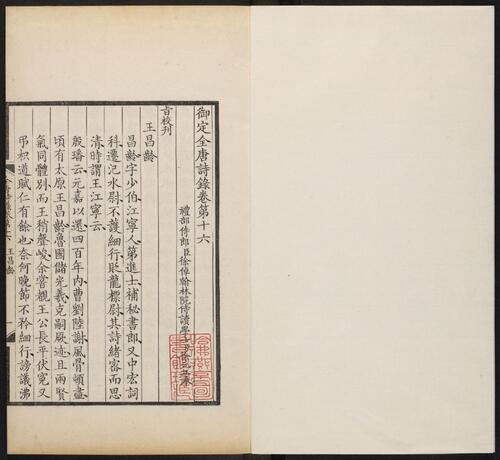 御定全唐詩錄卷第十六
禮部侍郎臣徐倬翰林院侍讀學
旨校刊
王昌齡
昌齡字少伯江寧人第進士補秘書郎又中宏詞
科遷汜水尉不護細行貶龍標尉其詩緒密而思
清時謂王江寧云
殷璠云元嘉以還四百年內曹劉陸謝風骨頓盡
頃有太原王昌齡魯國儲光羲克嗣厥迹且兩賢
氣同體別而王稍聲峻余嘗覩王公長平伏冤又
弔枳道賦仁有餘也奈何晚節不矜細行謗議沸
王昌齡